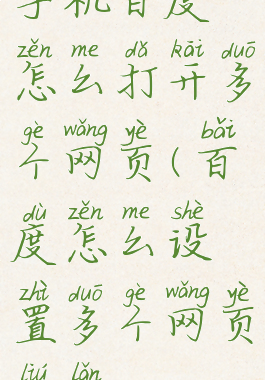 手机百度
zěn me dǎ kāi duō
怎么打开多
gè wǎng yè bǎi
个网页(百
dù zěn me shè
度怎么设
zhì duō gè wǎng yè
置多个网页
liú lǎn